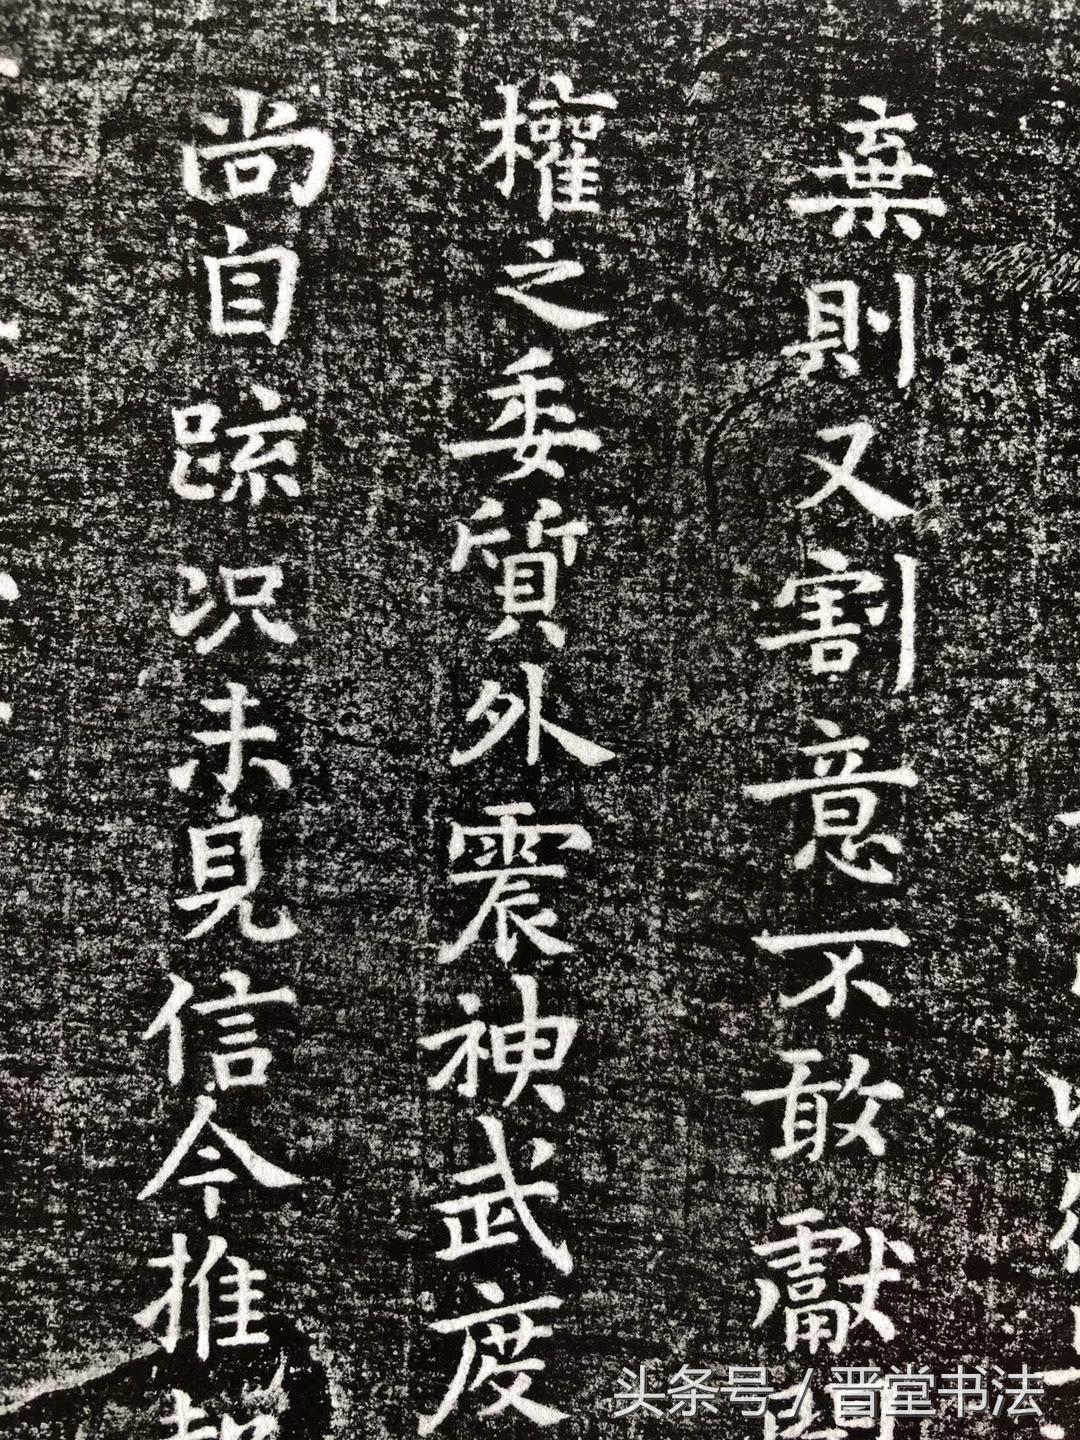 棄則又割意不敢獻聞
權之委質外震神武度
尚自疏况未見信今推
头条号 / 晋堂书法